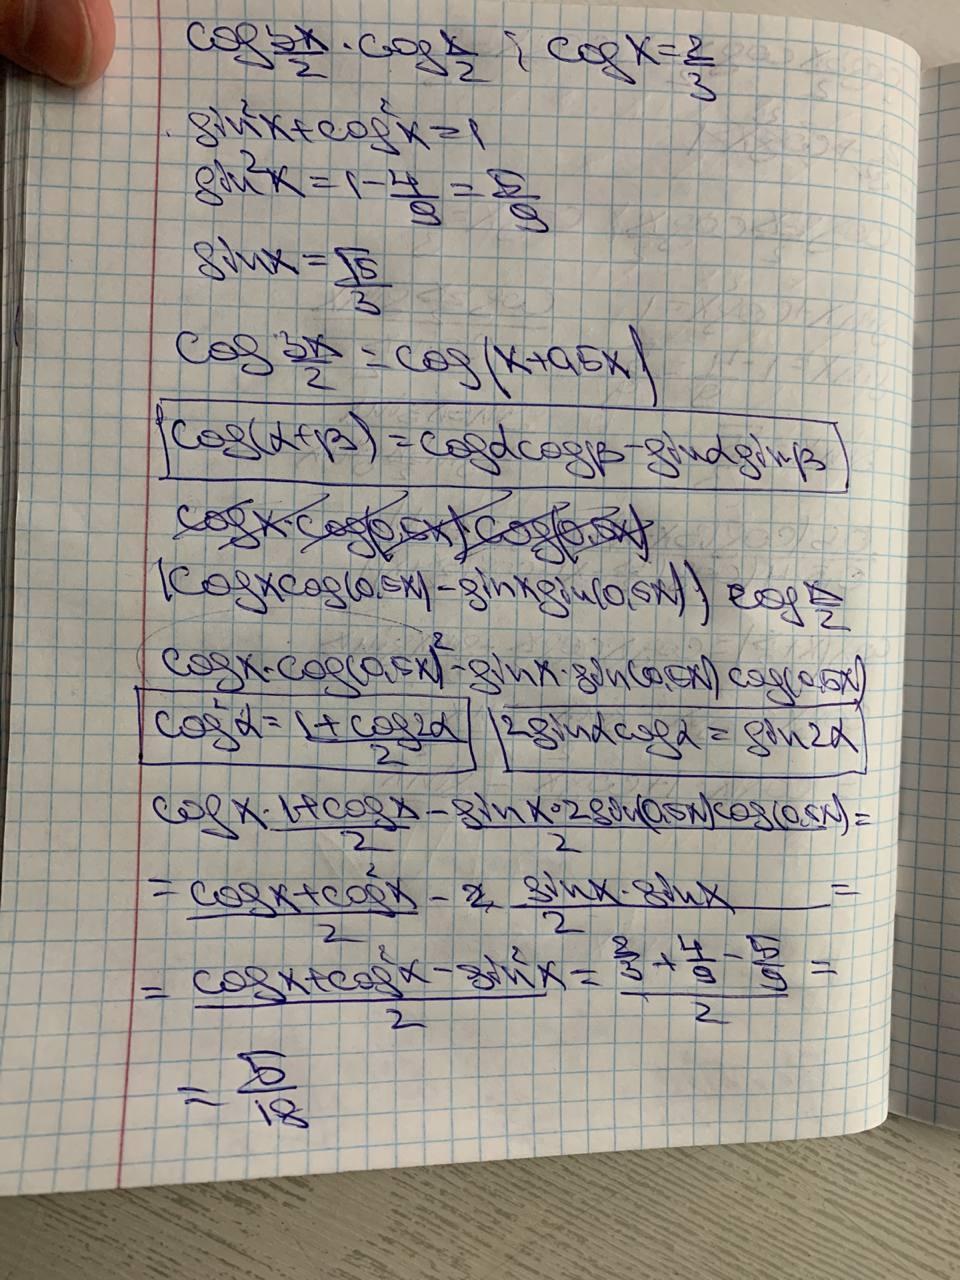 cos 3x/2 · cos x/2 ; cos x = 2/3
sin²x + cos²x = 1
sin²x = 1 - 4/9 = 5/9
sin x = √5/3
cos 3x/2 = cos(x+0,5x)
cos(α+β) = cosα cosβ - sinα sinβ
cos x · cos(0,5x) · cos(0,5x)
(cos x cos(0,5x) - sin x sin(0,5x)) cos x/2
cos x · cos(0,5x)² - sin x · sin(0,5x) cos(0,5x)
cos²α = (1 + cos 2α)/2 2 sinα cosα = sin 2α
cos x · (1 + cos x)/2 - (sin x · 2 sin(0,5x) cos(0,5x))/2 =
= (cos x + cos²x)/2 - (sin x · sin x)/2 =
= (cos x + cos²x - sin²x)/2 = (2/3 + 4/9 - 5/9)/2 =
= 5/18